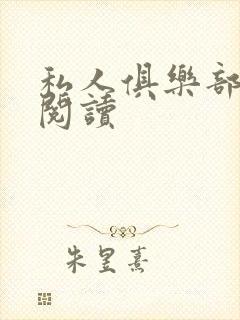 私人俱樂部
閱讀
朱星熹